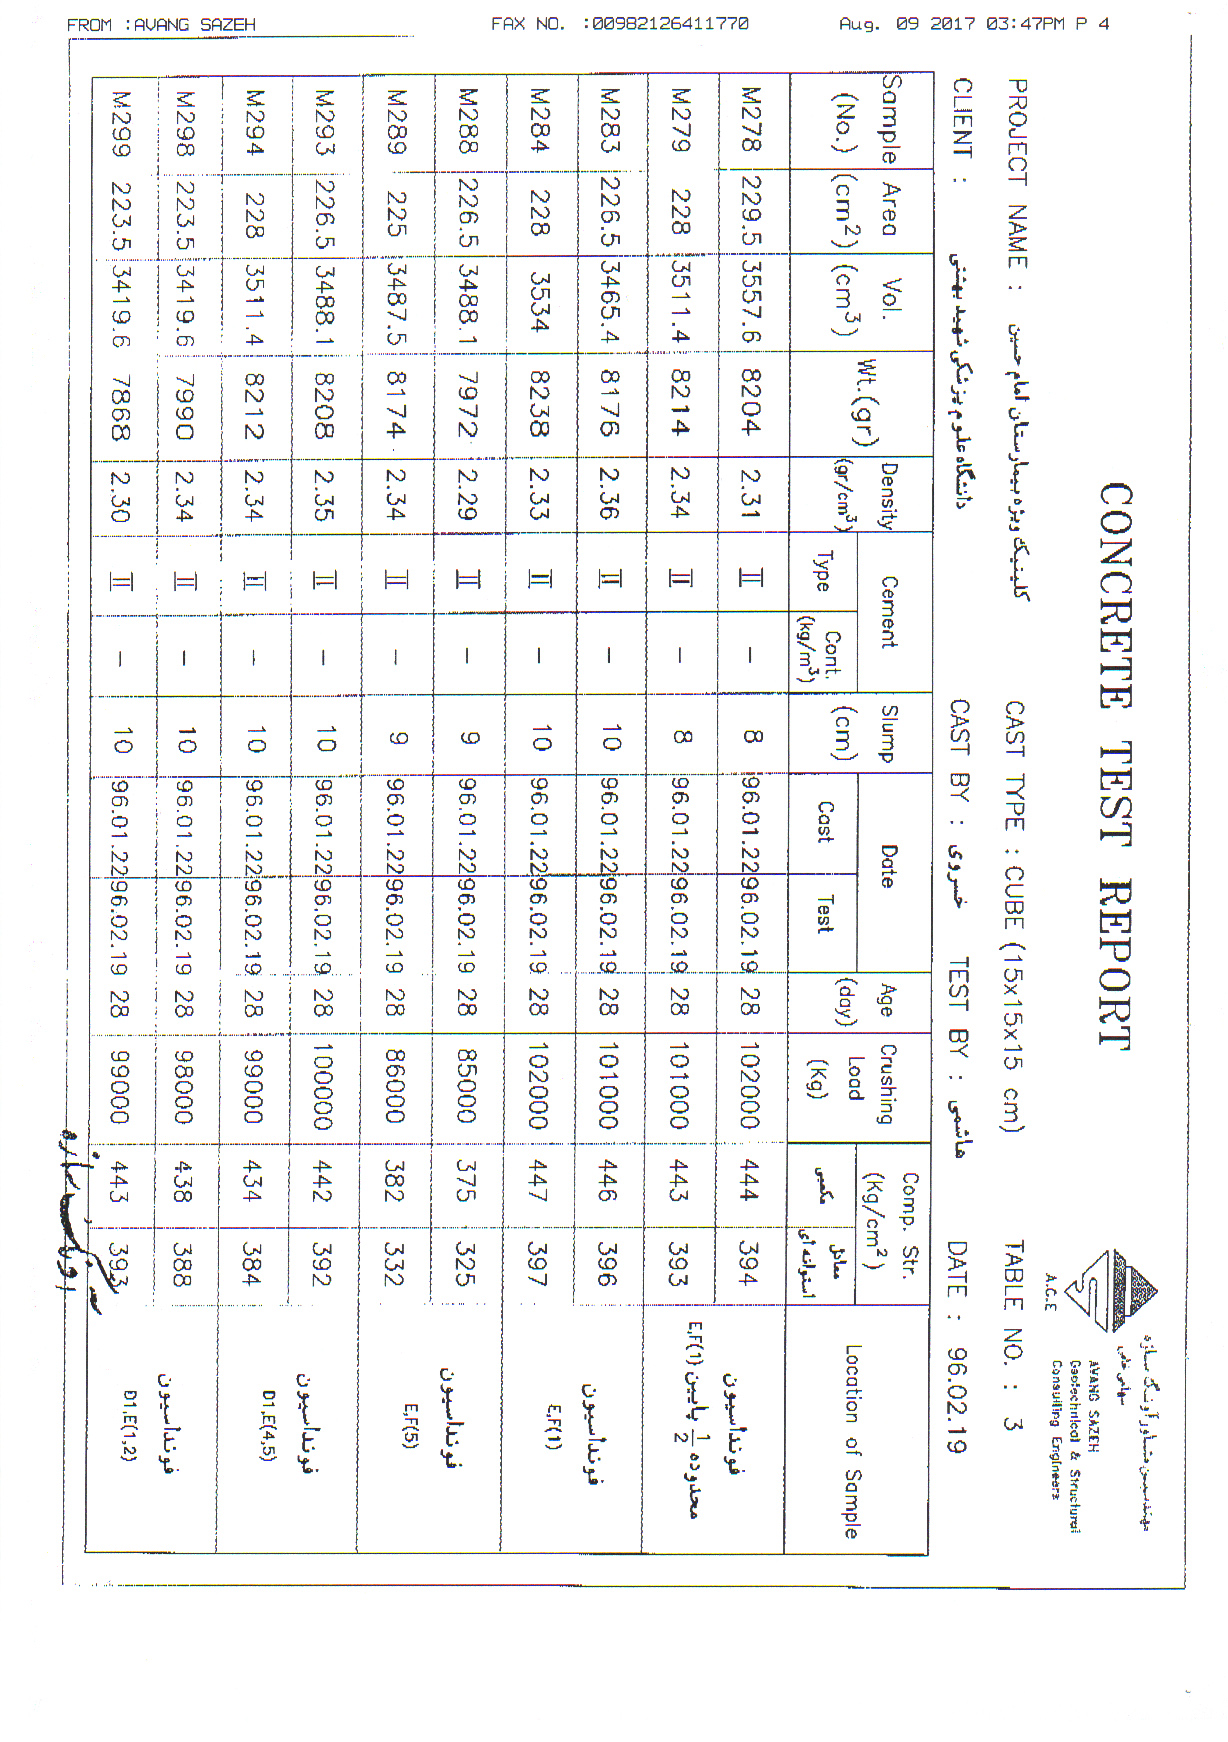 FROM :AVANG SAZEH FAX NO. :00982126411770 Aug. 09 2017 03:47PM P 4
مهندسین مشاور آونگ سازه
سهامی خاص
AVANG SAZEH
Geotechnical & Structural
Consulting Engineers
A.G.E
CONCRETE TEST REPORT
PROJECT NAME : کلینیک ویژه بیمارستان امام حسین CAST TYPE : CUBE (15x15x15 cm) TABLE NO. : 3
CLIENT : دانشگاه علوم پزشکی شهید بهشتی CAST BY : خسروی TEST BY : هاشمی DATE : 96.02.19
Sample (No.) Area (cm²) Vol. (cm³) Wt.(gr) Density (gr/cm³) Cement Type Cont. (kg/m³) Slump (cm) Date Cast Test Age (day) Crushing Load (Kg) Comp. Str. (Kg/cm²) مکعبی معادل استوانه ای Location of Sample
M278 229.5 3557.6 8204 2.31 II – 8 96.01.22 96.02.19 28 102000 444 394 فونداسیون
M279 228 3511.4 8214 2.34 II – 8 96.01.22 96.02.19 28 101000 443 393 محدوده 1/2 پایین E,F(1)
M283 226.5 3465.4 8176 2.36 II – 10 96.01.22 96.02.19 28 101000 446 396 فونداسیون
M284 228 3534 8238 2.33 II – 10 96.01.22 96.02.19 28 102000 447 397 E,F(1)
M288 226.5 3488.1 7972 2.29 II – 9 96.01.22 96.02.19 28 85000 375 325 فونداسیون
M289 225 3487.5 8174 2.34 II – 9 96.01.22 96.02.19 28 86000 382 332 E,F(5)
M293 226.5 3488.1 8208 2.35 II – 10 96.01.22 96.02.19 28 100000 442 392 فونداسیون
M294 228 3511.4 8212 2.34 II – 10 96.01.22 96.02.19 28 99000 434 384 D1,E(4,5)
M298 223.5 3419.6 7990 2.34 II – 10 96.01.22 96.02.19 28 98000 438 388 فونداسیون
M299 223.5 3419.6 7868 2.30 II – 10 96.01.22 96.02.19 28 99000 443 393 D1,E(1,2)